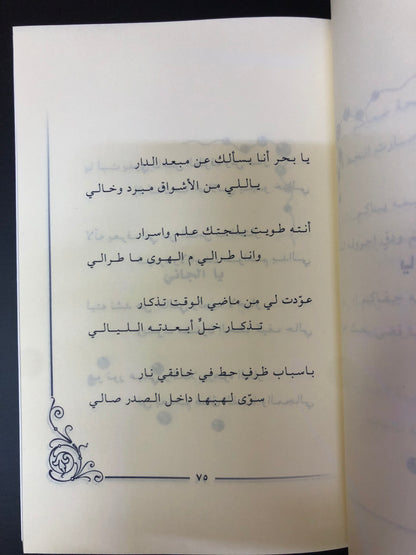 يا بحر أنا بسألك عن مبعد الدار
ياللي من الأشواق مبرد وخالي
أنته طويت بلجتك علم واسرار
وانا طرالي م الهوى ما طرالي
عوّدت لي من ماضي الوقت تذكار
تذكار خلٍّ أبعدته الليالي
باسباب ظرفٍ حط في خافقي نار
سوّى لهبها داخل الصدر صالي
٧٥